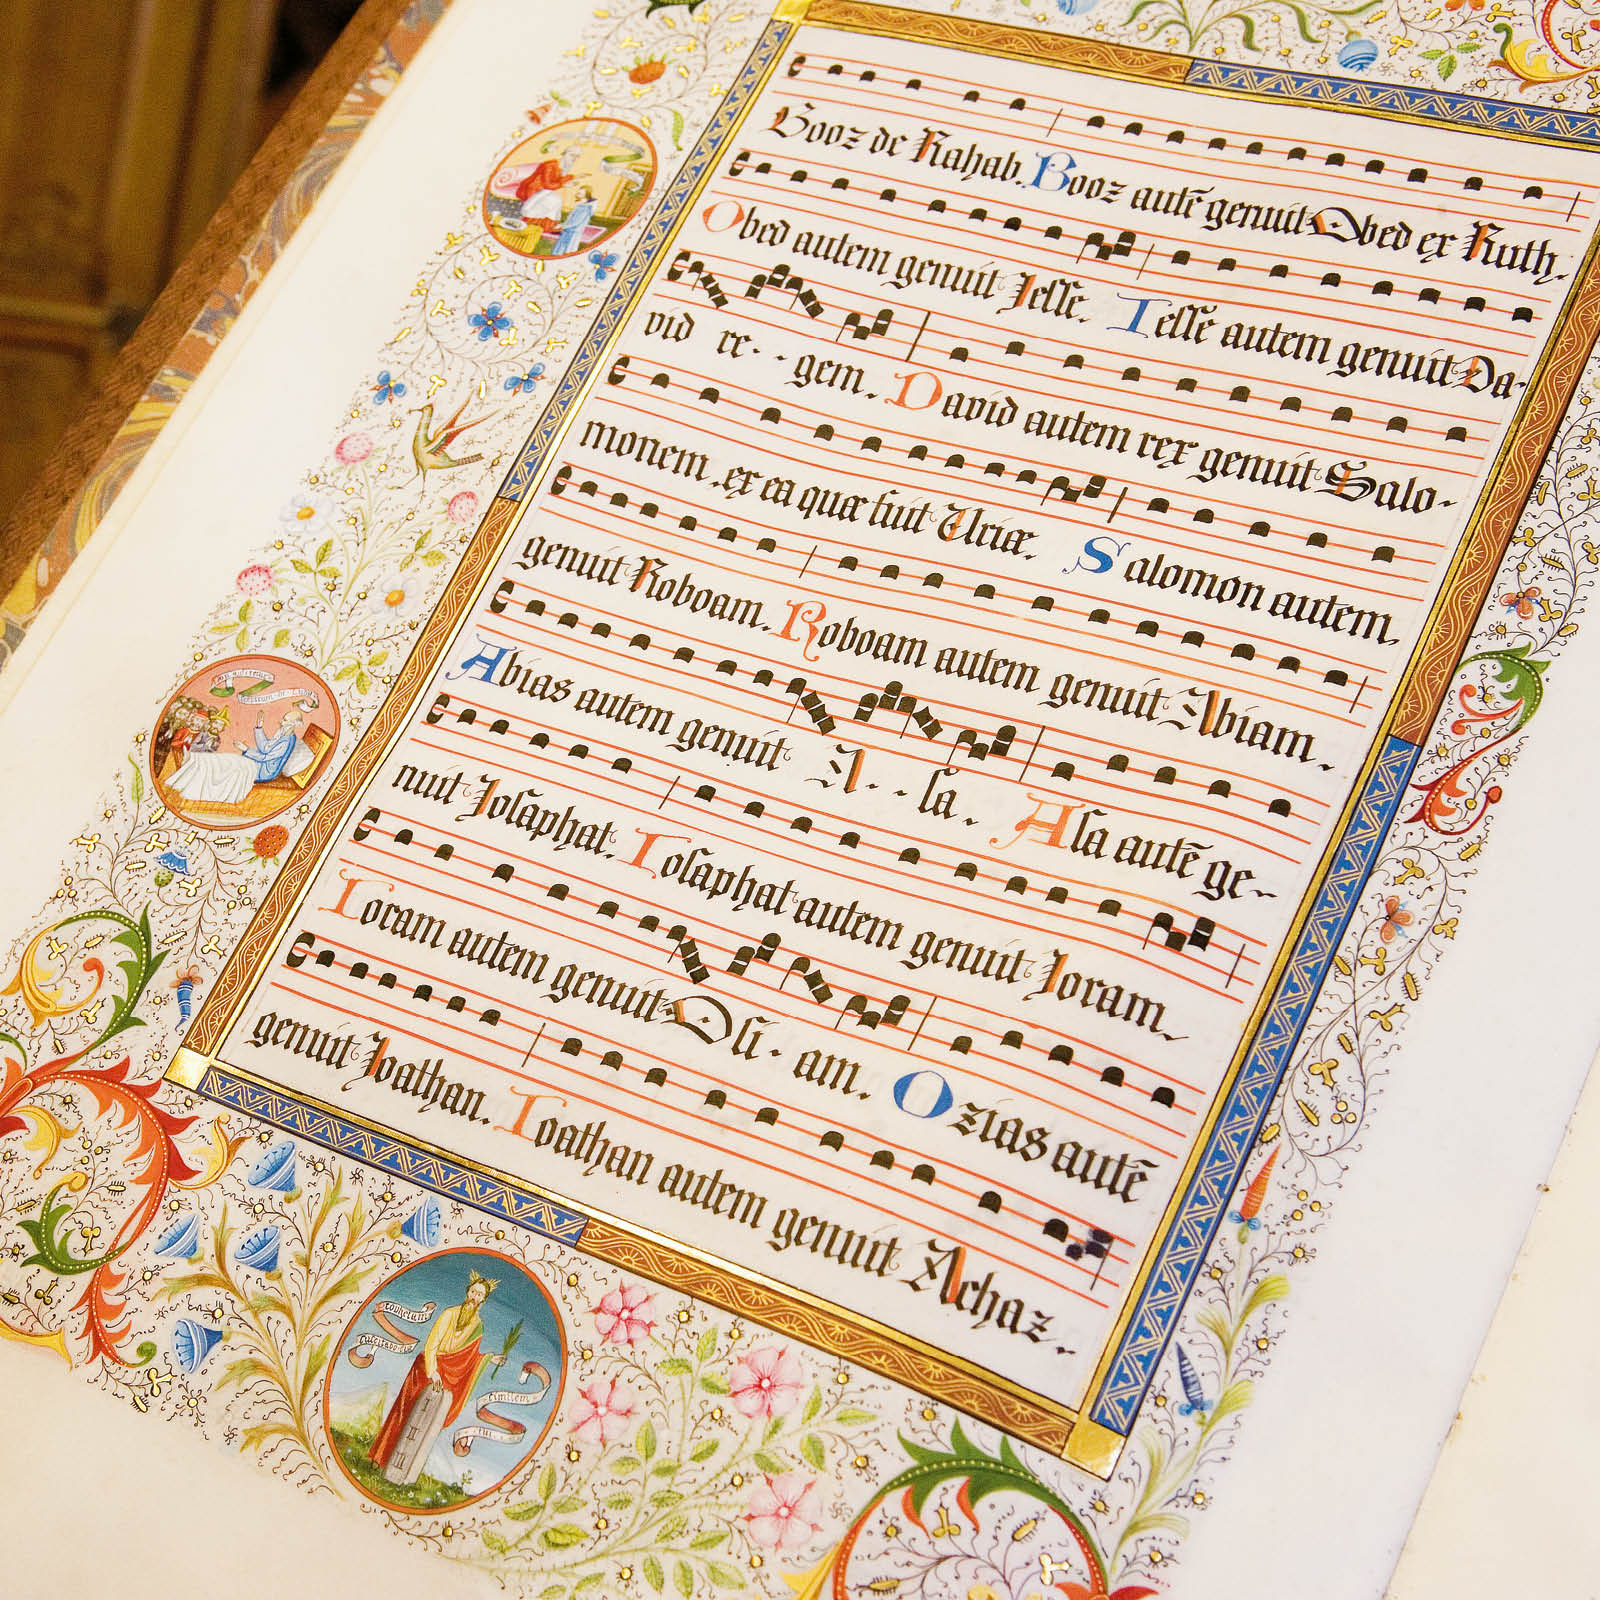 Booz de Rahab. Booz autē genuit Obed ex Ruth.
Obed autem genuit Jesse. Iesse autem genuit Da-
vid re- - gem. David autem rex genuit Salo-
monem, ex ea quæ fuit Uriæ. Salomon autem
genuit Roboam. Roboam autem genuit Abiam.
Abias autem genuit A- - sa. Asa autē ge-
nuit Josaphat. Iosaphat autem genuit Joram.
Ioram autem genuit Osi- am. Ozias autē
genuit Joathan. Ioathan autem genuit Achaz.
suscitabo eis
similem
tui